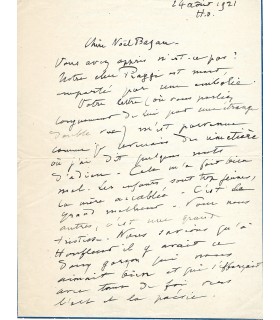 24 août 1921
H.D.
Chère Noël Bazan -
Vous avez appris n'est-ce pas?
Notre cher Piaggi est mort
emporté par une embolie.
Votre lettre (où vous parliez
longuement de lui par une étrange
double vue) m'est parvenue
comme je revenais du cimetière
où j'ai dit quelques mots
d'adieu - Cela m'a fait bien
mal. Les enfants sont trop jeunes,
la mère accablée - C'est le
grand malheur - Pour nous
autres, c'est une grande
tristesse. Nous savions qu'à
Honfleur il y avait ce
garçon qui nous
aimait bien et qui s'efforçait
avec tant de foi vers
l'art et la poésie.